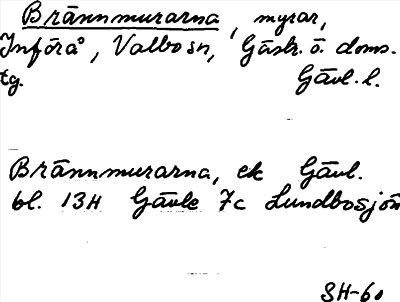 Brännmurarna, myrar,
Införå, Valbo sn, Gästr. ö. doms.
tg. Gävl. l.
Brännmurarna, ek Gävl.
bl. 13H Gävle 7c Lundbosjön
SH-60